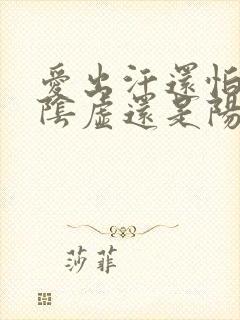 愛出汗還怕
陰虛還是陽
莎菲